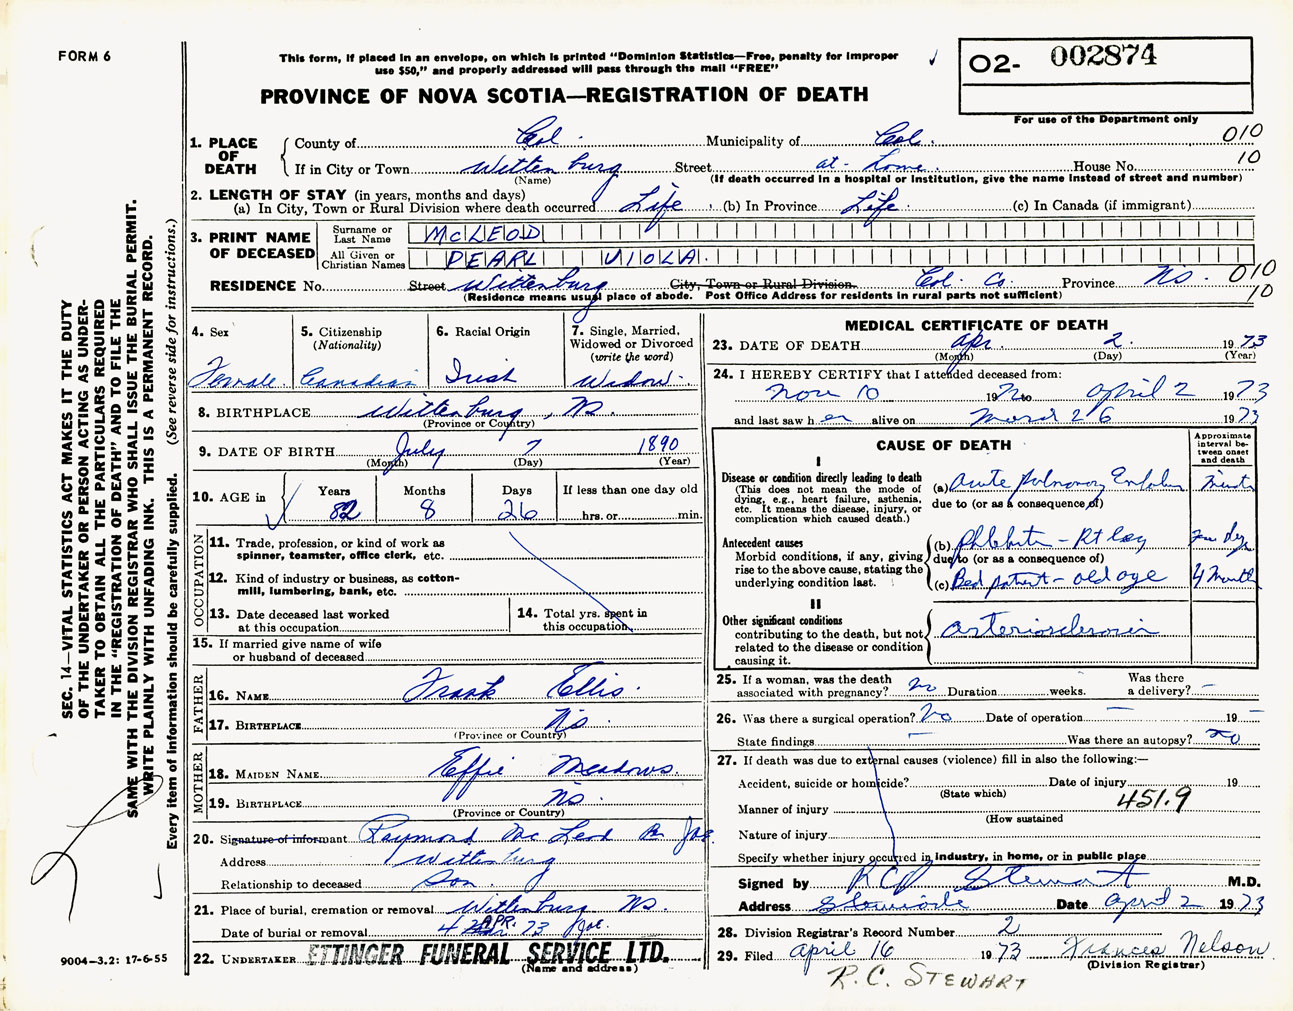 FORM 6
This form, if placed in an envelope, on which is printed "Dominion Statistics—Free, penalty for improper
use $50," and properly addressed will pass through the mail "FREE"
O2- 002874
For use of the Department only
PROVINCE OF NOVA SCOTIA—REGISTRATION OF DEATH
1. PLACE OF DEATH
County of Col. Municipality of Col. 010
If in City or Town Wittenburg Street at home House No. 10
(Name) (If death occurred in a hospital or institution, give the name instead of street and number)
2. LENGTH OF STAY (in years, months and days)
(a) In City, Town or Rural Division where death occurred Life (b) In Province Life (c) In Canada (if immigrant)
3. PRINT NAME OF DECEASED
Surname or Last Name McLEOD
All Given or Christian Names PEARL VIOLA.
RESIDENCE No. Street Wittenburg City, Town or Rural Division. Col. Co. Province N.S. 010
(Residence means usual place of abode. Post Office Address for residents in rural parts not sufficient) 10
4. Sex Female.
5. Citizenship (Nationality) Canadian
6. Racial Origin Irish
7. Single, Married, Widowed or Divorced (write the word) Widow.
8. BIRTHPLACE Wittenburg, N.S.
(Province or Country)
9. DATE OF BIRTH July 7 1890
(Month) (Day) (Year)
10. AGE in Years 82 Months 8 Days 26 If less than one day old hrs. or min.
OCCUPATION
11. Trade, profession, or kind of work as
spinner, teamster, office clerk, etc.
12. Kind of industry or business, as cotton-
mill, lumbering, bank, etc.
13. Date deceased last worked
at this occupation
14. Total yrs. spent in
this occupation
15. If married give name of wife
or husband of deceased
FATHER
16. NAME Frank Ellis.
17. BIRTHPLACE N.S.
(Province or Country)
MOTHER
18. MAIDEN NAME Effie Meadows.
19. BIRTHPLACE N.S.
(Province or Country)
20. Signature of informant Raymond McLeod
Address Wittenburg
Relationship to deceased Son.
21. Place of burial, cremation or removal Wittenburg N.S.
Date of burial or removal 4 APR. 73
22. UNDERTAKER ETTINGER FUNERAL SERVICE LTD.
(Name and address)
MEDICAL CERTIFICATE OF DEATH
23. DATE OF DEATH Apr. 2. 1973
(Month) (Day) (Year)
24. I HEREBY CERTIFY that I attended deceased from:
Nov 10 1972 to April 2 1973
and last saw her alive on March 26 1973
CAUSE OF DEATH
Approximate interval between onset and death
I
Disease or condition directly leading to death
(This does not mean the mode of
dying, e.g., heart failure, asthenia,
etc. It means the disease, injury, or
complication which caused death.)
(a) Acute Pulmonary Embolus
due to (or as a consequence of)
Antecedent causes
Morbid conditions, if any, giving
rise to the above cause, stating the
underlying condition last.
(b) Phlebitis - Rt leg few days
due to (or as a consequence of)
(c) Bed patient - old age 4 Months
II
Other significant conditions
contributing to the death, but not
related to the disease or condition
causing it.
arteriosclerosis
25. If a woman, was the death
associated with pregnancy? no Duration weeks. Was there
a delivery? -
26. Was there a surgical operation? No Date of operation - 19 -
State findings - Was there an autopsy? no
27. If death was due to external causes (violence) fill in also the following:—
Accident, suicide or homicide? Date of injury 19
(State which)
Manner of injury 451.9
(How sustained
Nature of injury
Specify whether injury occurred in industry, in home, or in public place
Signed by R C Stewart M.D.
Address Stewiacke Date April 2 1973
28. Division Registrar's Record Number 2
29. Filed April 16 1973 Frances Nelson
(Division Registrar)
R.C. STEWART
SEC. 14—VITAL STATISTICS ACT MAKES IT THE DUTY
OF THE UNDERTAKER OR PERSON ACTING AS UNDER-
TAKER TO OBTAIN ALL THE PARTICULARS REQUIRED
IN THE "REGISTRATION OF DEATH" AND TO FILE THE
SAME WITH THE DIVISION REGISTRAR WHO SHALL ISSUE THE BURIAL PERMIT.
WRITE PLAINLY WITH UNFADING INK. THIS IS A PERMANENT RECORD.
Every item of information should be carefully supplied. (See reverse side for instructions.)
9004—3.2: 17-6-55